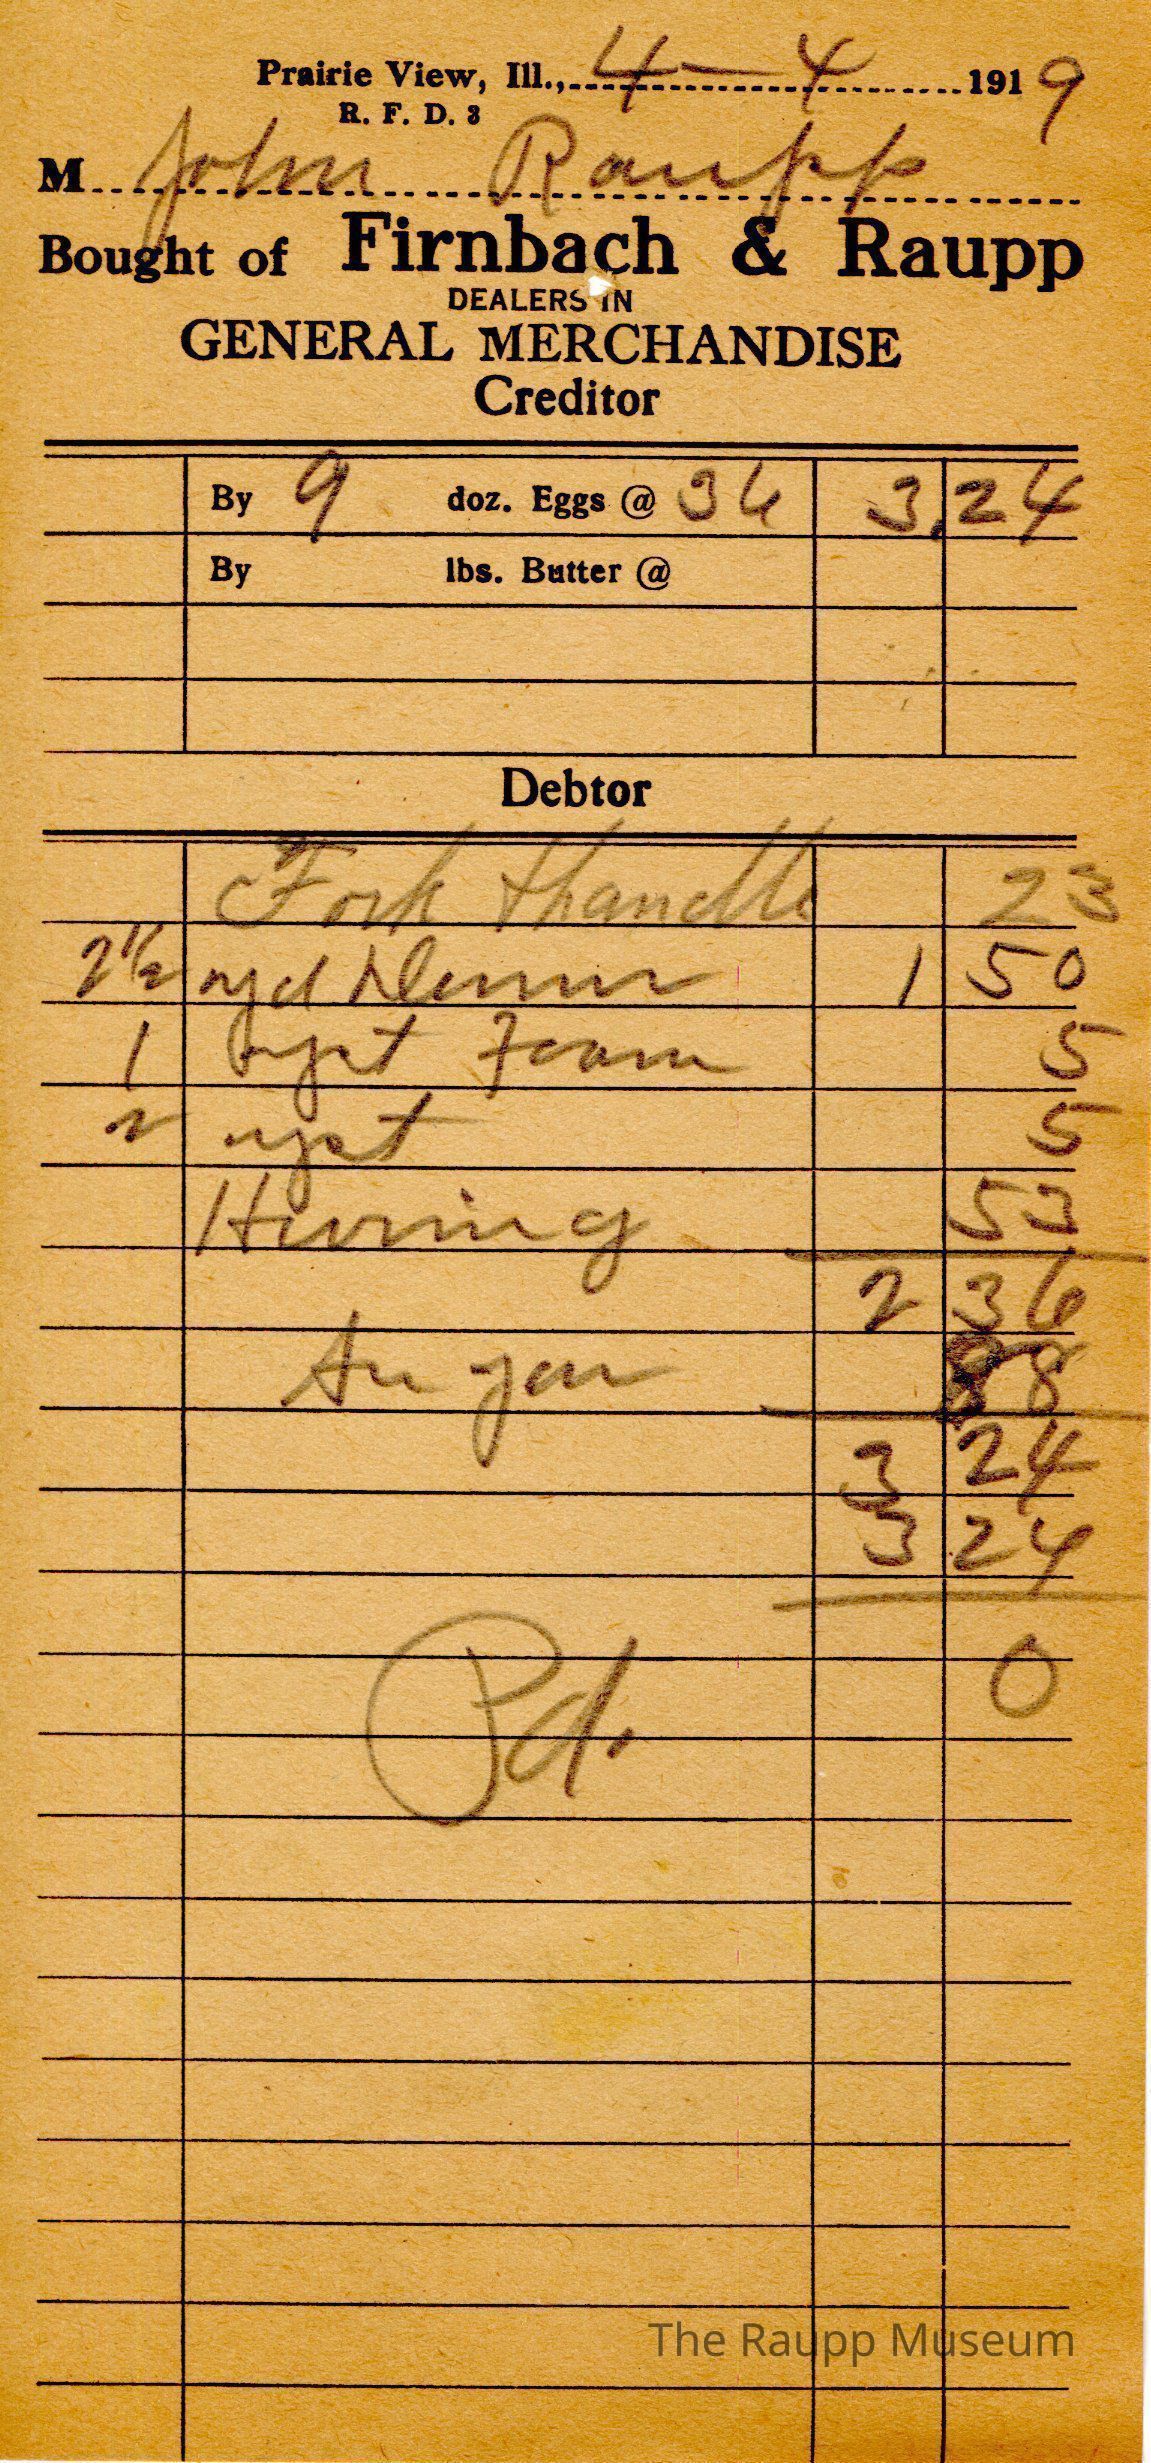 Prairie View, Ill., 4 — 4 1919
R. F. D. 3
M John Raupp
Bought of Firnbach & Raupp
DEALERS IN
GENERAL MERCHANDISE
Creditor
By 9 doz. Eggs @ 36 3.24
By lbs. Butter @
Debtor
Fork Handle 23
2 1/2 yd 1 50
1 Foam 5
2 5
53
2 36
88
3 24
3 24
0
Pd.
The Raupp Museum